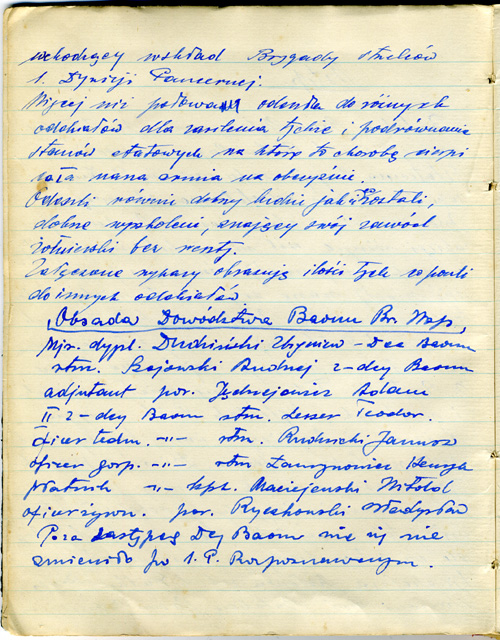 wchodzący wskład Brygady strzelców
1. Dywizji Pancernej.
Więcej niż połowa odeszła do różnych
oddziałów dla zasilenia tychże i podrównania
stanów etatowych na którą to chorobę cierpi
cała nasza armia na obczyźnie.
Odeszli równie dobrzy ludzie jak i zostali,
dobrze wyszkoleni, znający swój zawód
żołnierski bez reszty.
Załączone wykazy obrazują ilość tych co poszli
do innych oddziałów
Obsada Dowództwa Baonu Br. Wsp.
Mjr. dypl. Dudziński Zbigniew - Dca Baonu
rtm. Szajowski Andrzej z-dcy Baonu
adjutant por. Jędrzejewicz Adam
II z-dcy Baonu rtm. Lesser Teodor.
oficer techn. -"- rtm. Rudnicki Janusz
oficer gosp. -"- rtm Henryk
Płatnik -"- kpt. Maciejewski Witold
oficer żywn. por. Rychłowski Władysław
Poza zastępcą Dcy Baonu nic się nie
zmieniło po 1. P. Rozpoznawczym.